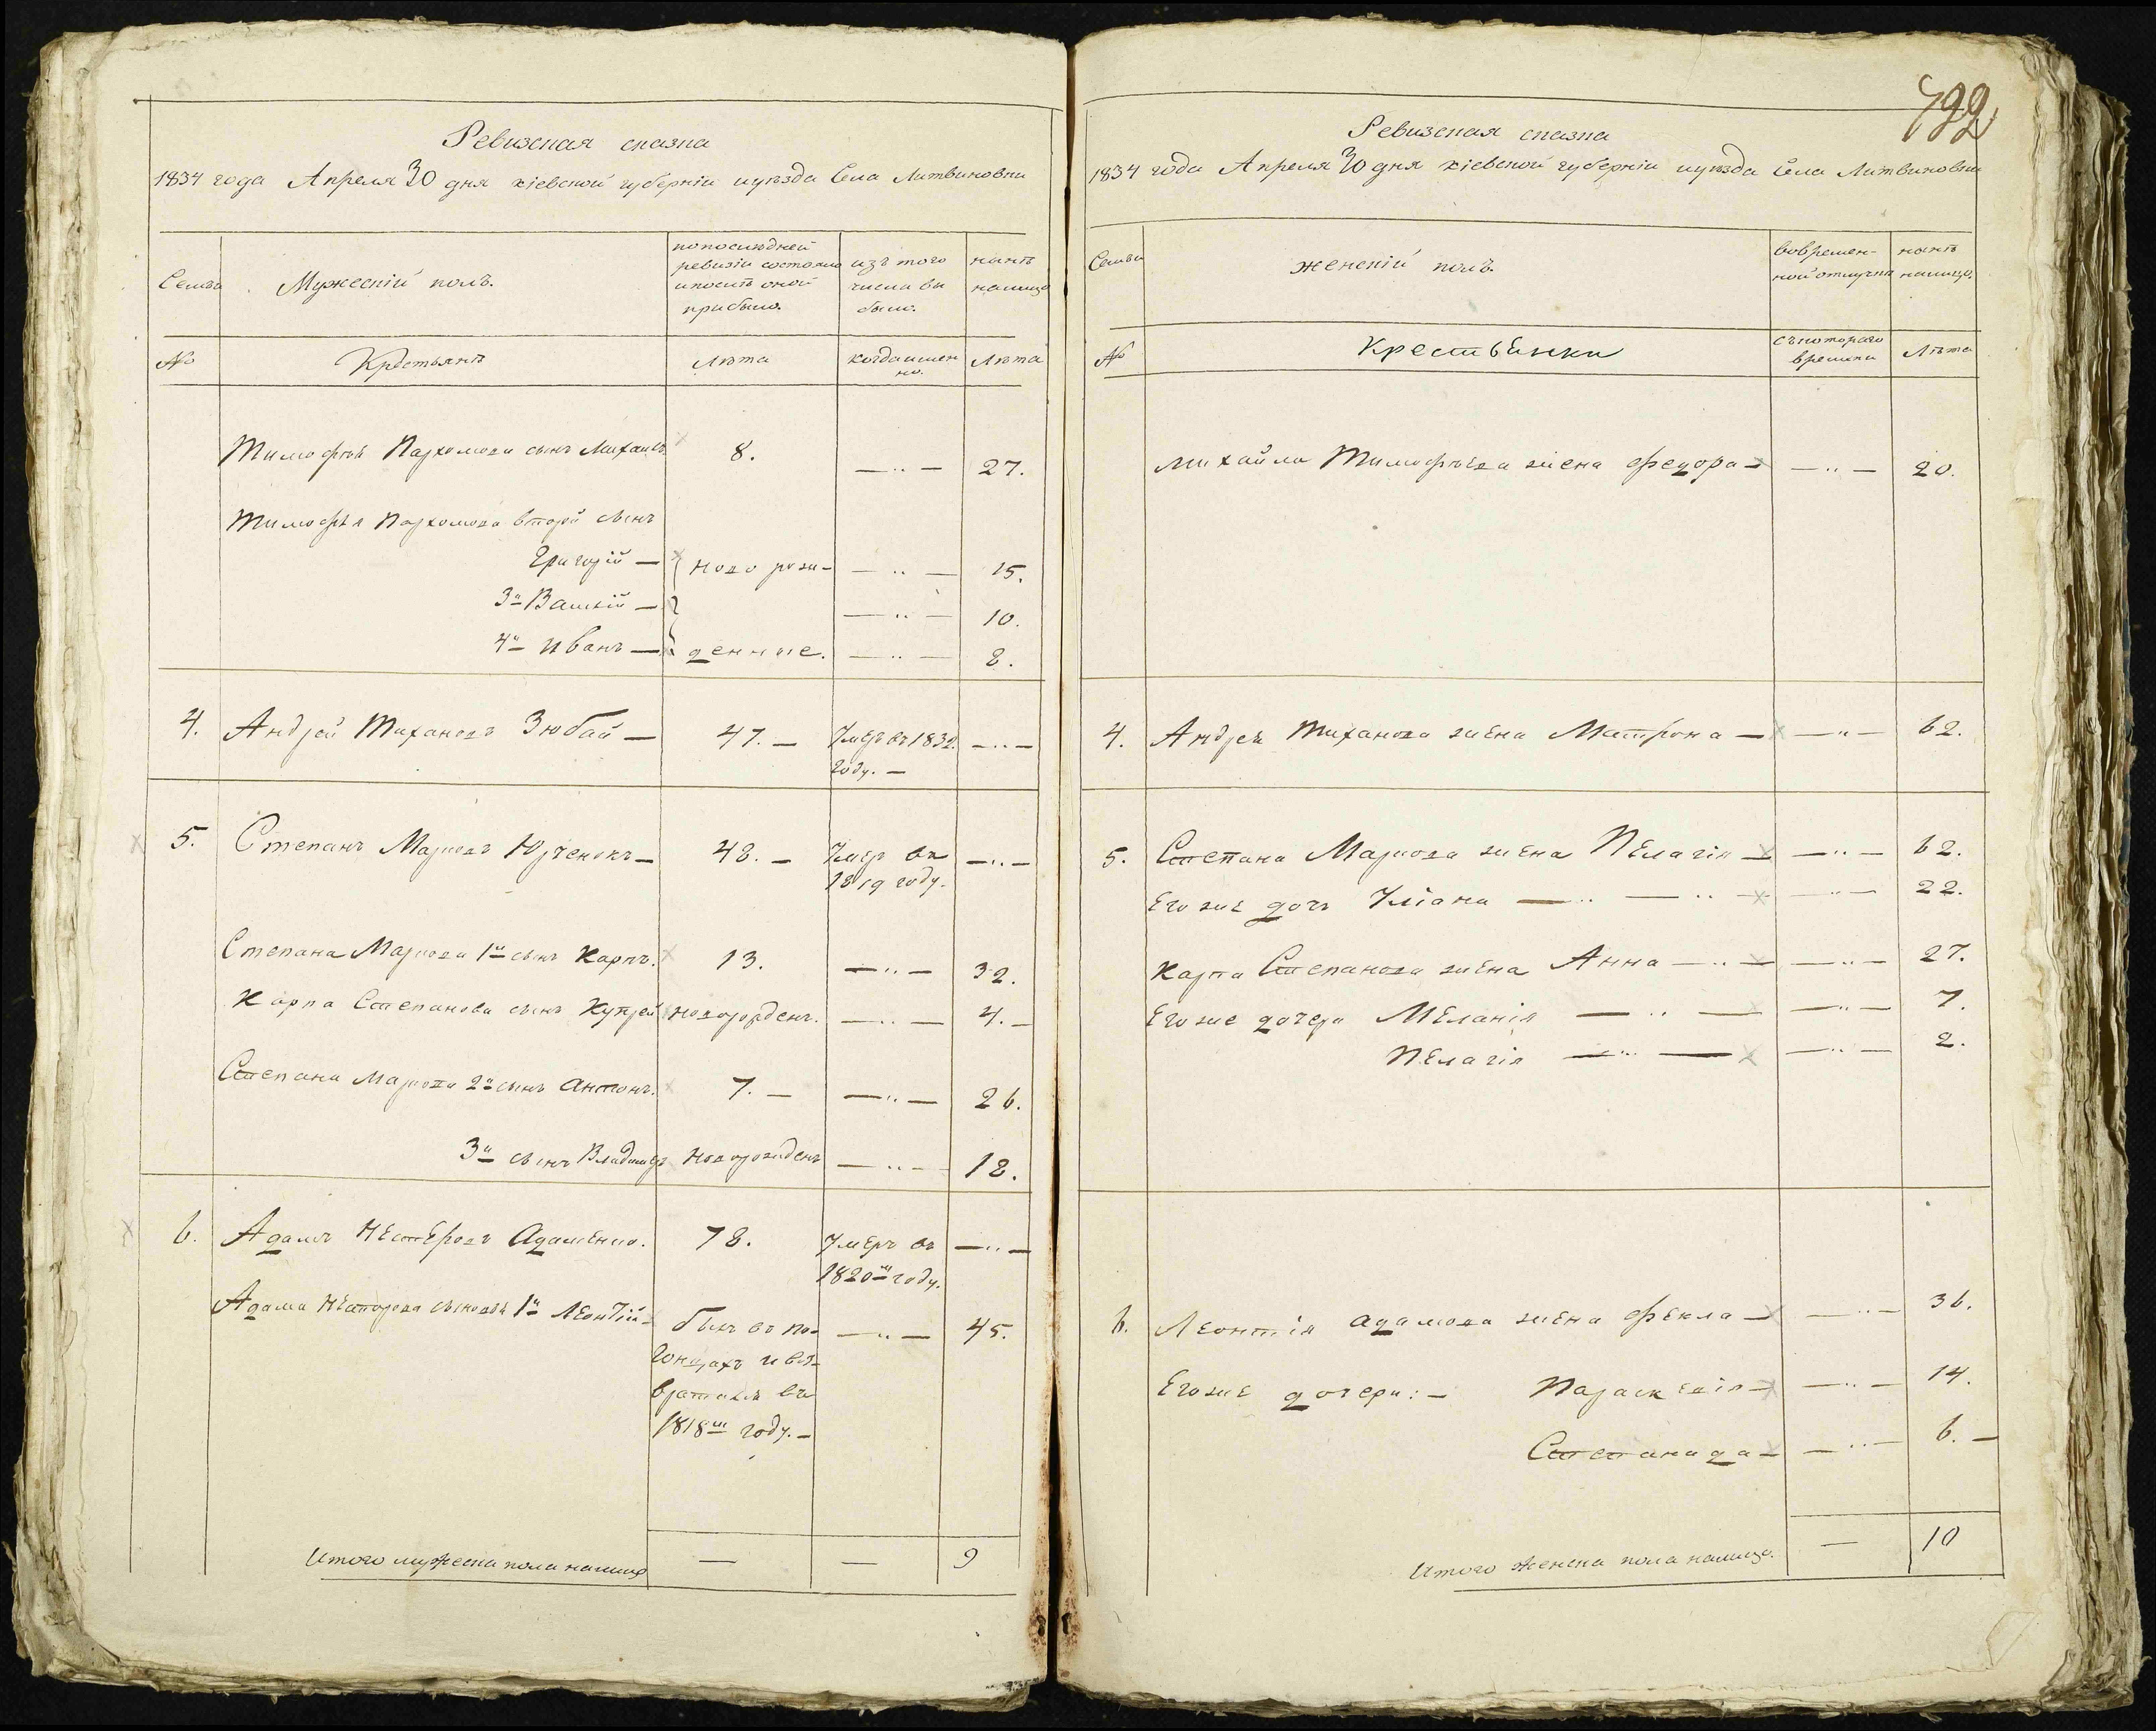 Ревизская сказка
1834 года Апреля 30 дня кіевской губерніи и уѣзда Села Литвиновки
Семьи
Мужескій полъ.
по послѣдней ревизіи состояло и послѣ оной прибыло.
изъ того числа выбыло.
нынѣ налицо
№
Крестьянѣ
Лѣта
когда имянно.
Лѣта
Тимофѣя Пархомова сынъ Михаилъ 8. —„— 27.
Тимофѣя Пархомова второй сынъ
Григорій — ново рож- —„— 15.
3й Василій — —„— 10.
4й Иванъ — денные. —„— 8.
4. Андрей Тихановъ Зюбай — 47. — Умеръ въ 1832 —„—
году. —
5. Степанъ Марковъ Юрченокъ — 48. — Умеръ въ —„—
1819 году.
Степана Маркова 1й сынъ Карпъ. 13. —„— 32.
Карпа Степанова сынъ Купрей новорожденъ. —„— 4. —
Степана Маркова 2й сынъ Антонъ. 7. — —„— 26.
3й сынъ Владимиръ новорожденъ —„— 18.
6. Адамъ Нестеровъ Адаменко. 78. Умеръ въ —„—
1820м году.
Адама Нестерова сыновья 1й Леонтій — былъ въ по- —„— 45.
гонцахъ и воз-
вратился въ
1818м году. —
Итого мужеска пола налицо — — 9
792
Ревизская сказка
1834 года Апреля 30 дня кіевской губерніи и уѣзда Села Литвиновки
Семьи
женскій полъ.
во временной отлучкѣ
нынѣ налицо.
№
Крестьянки
съ котораго времени
Лѣта
Михайла Тимофѣева жена Федора — —„— 20.
4. Андрея Тиханова жена Матрона — —„— 62.
5. Степана Маркова жена Пелагія — —„— 62.
Его же дочь Уліана — „ — „ — —„— 22.
Карпа Степанова жена Анна — „ — —„— 27.
Его же дочери Меланія — „ — —„— 7.
Пелагія — „ — —„— 2.
6. Леонтія Адамова жена Фекла — —„— 36.
Его же дочери: — Параскевія — —„— 14.
Степанида — —„— 6. —
Итого женска пола налицо. — 10